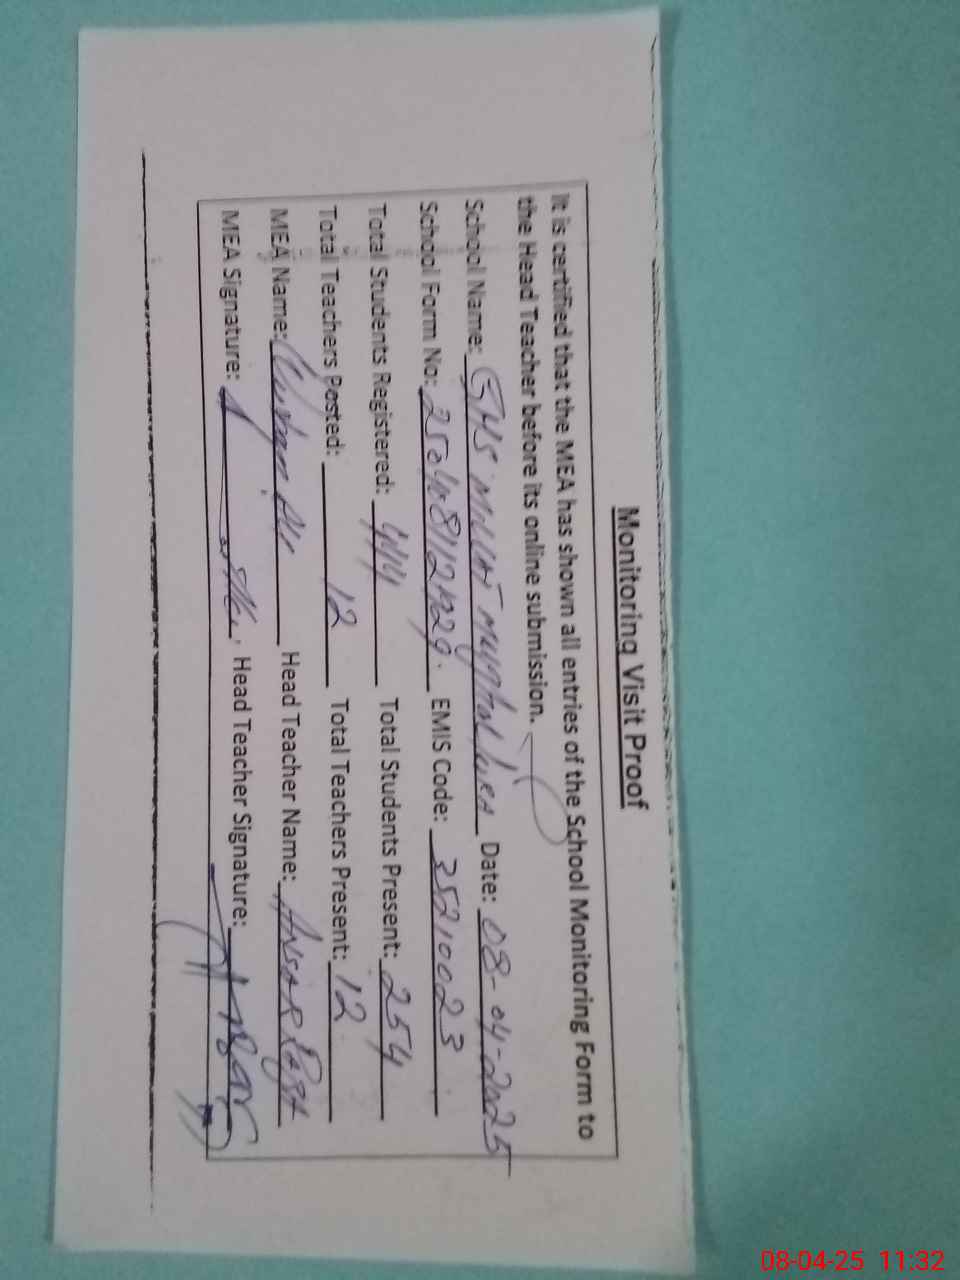 Monitoring Visit Proof
It is certified that the MEA has shown all entries of the School Monitoring Form to
the Head Teacher before its online submission.
School Name: GHS Date: 08-04-2025
School Form No: EMIS Code: 35210023
Total Students Registered: 444 Total Students Present: 254
Total Teachers Posted: 12 Total Teachers Present: 12
MEA Name: Head Teacher Name: ANSAR RAZA
MEA Signature: Head Teacher Signature:
08-04-25 11:32